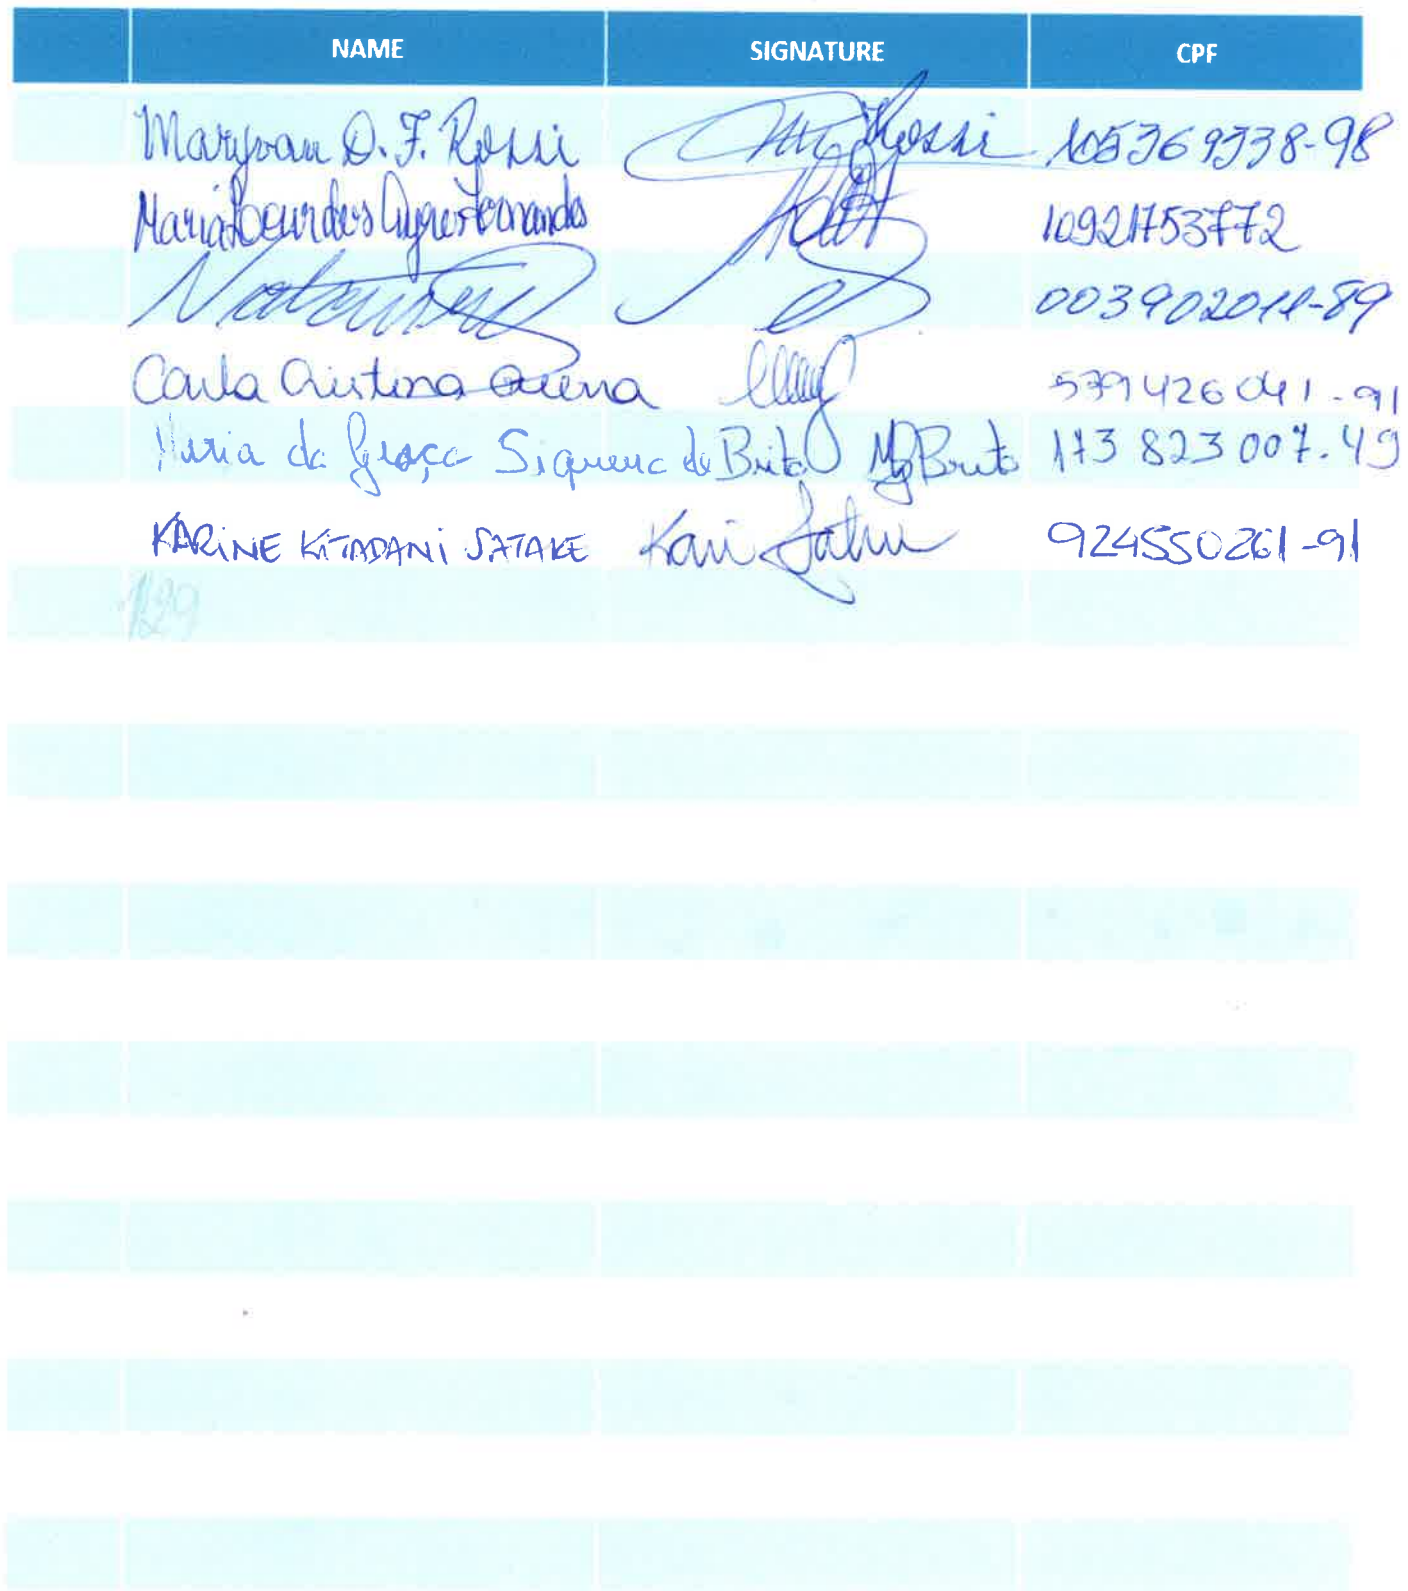 NAME SIGNATURE CPF
Maryvan D. F. Rossi Rossi 105369938-98
Maria Lourdes Ayres Fernandes 10921753772
003902011-89
Carla Cristina 579426041-91
Maria da Graça Siqueira de Brito Mg Brito 173 823 007.49
KARINE KITADANI SATAKE Kari Satake 924550261-91